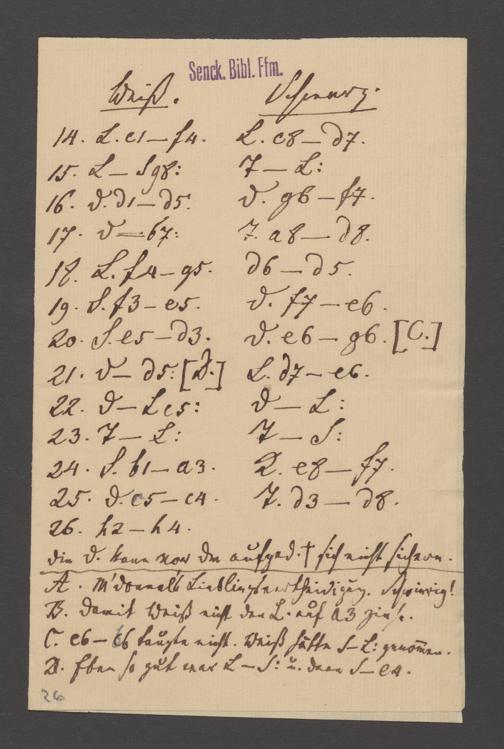 Senck. Bibl. Ffm.
Weiß. Schwarz.
14. L. c1 — f4. L. c8 — d7.
15. L — Sg8: T — L:
16. D. d1 — d5. D. g6 — f7.
17. D — b7: T. a8 — d8.
18. L. f4 — g5. d6 — d5.
19. S. f3 — e5. D. f7 — e6.
20. S. e5 — d3. D. e6 — g6. [C.]
21. D — d5: [D.] L. d7 — e6.
22. D — Le5: D — L:
23. T — L: T — S:
24. S. b1 — a3. K. e8 — f7.
25. D. c5 — c4. T. d3 — d8.
26. h2 — h4.
die D. kann vor dem aufged. † sich nicht sichern.
A. M'donnals Lieblingsvertheidigung. Schwierig!
B. damit Weiß nicht den L. auf a3 ziehe.
C. e6 — b6 taugte nicht. Weiß hätte S — L: genommen.
D. Eben so gut war L — S: u. dann S — e4.
26